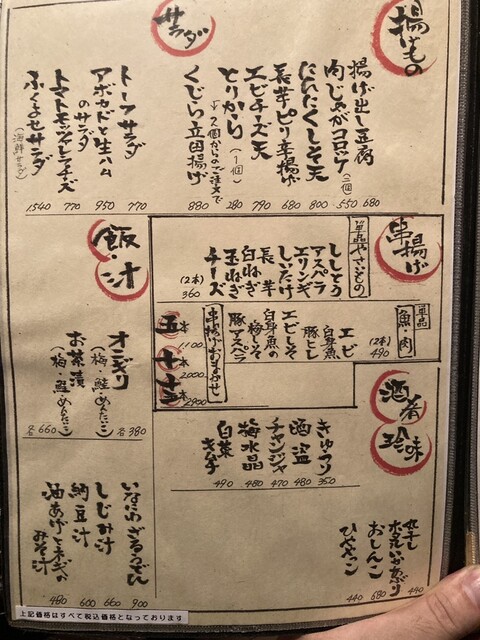 揚げもの
揚げ出し豆腐 680
肉じゃがコロッケ(二個) 550
にんにくしそ天 800
長芋ピリ辛揚げ 680
エビチーズ天 790
とりから(1個) 280
↓2個からのご注文で
くじら立田揚げ 880
サラダ
トーフサラダ 770
アボカドと生ハムのサラダ 950
トマトモッツァレラチーズ 770
ふくませサラダ(海鮮サラダ) 1540
串揚げ
単品やさいもの
ししとう
アスパラ
エリンギ
しいたけ
長芋
白ねぎ
玉ねぎ
チーズ
(2本) 360
単品 魚肉
(2本) 490
エビ
白身魚
豚ヒレ
エビしそ
白身魚の梅しそ
豚アスパラ
串揚げおまかせ
五本 1100
十本 2000
十五本 2900
飯・汁
オニギリ
(梅・鮭・めんたいこ)
各380
お茶漬
(梅・鮭・めんたいこ)
各660
いなにわざるうどん 900
しじみ汁 660
納豆汁 600
油あげとネギのみそ汁 480
酒肴珍味
きゅうり 350
酒盗 480
チャンジャ 470
梅水晶 480
白菜キムチ 490
丸干しホタルいかあぶり 440
おしんこ 680
ひややっこ 440
上記価格はすべて税込価格となっております